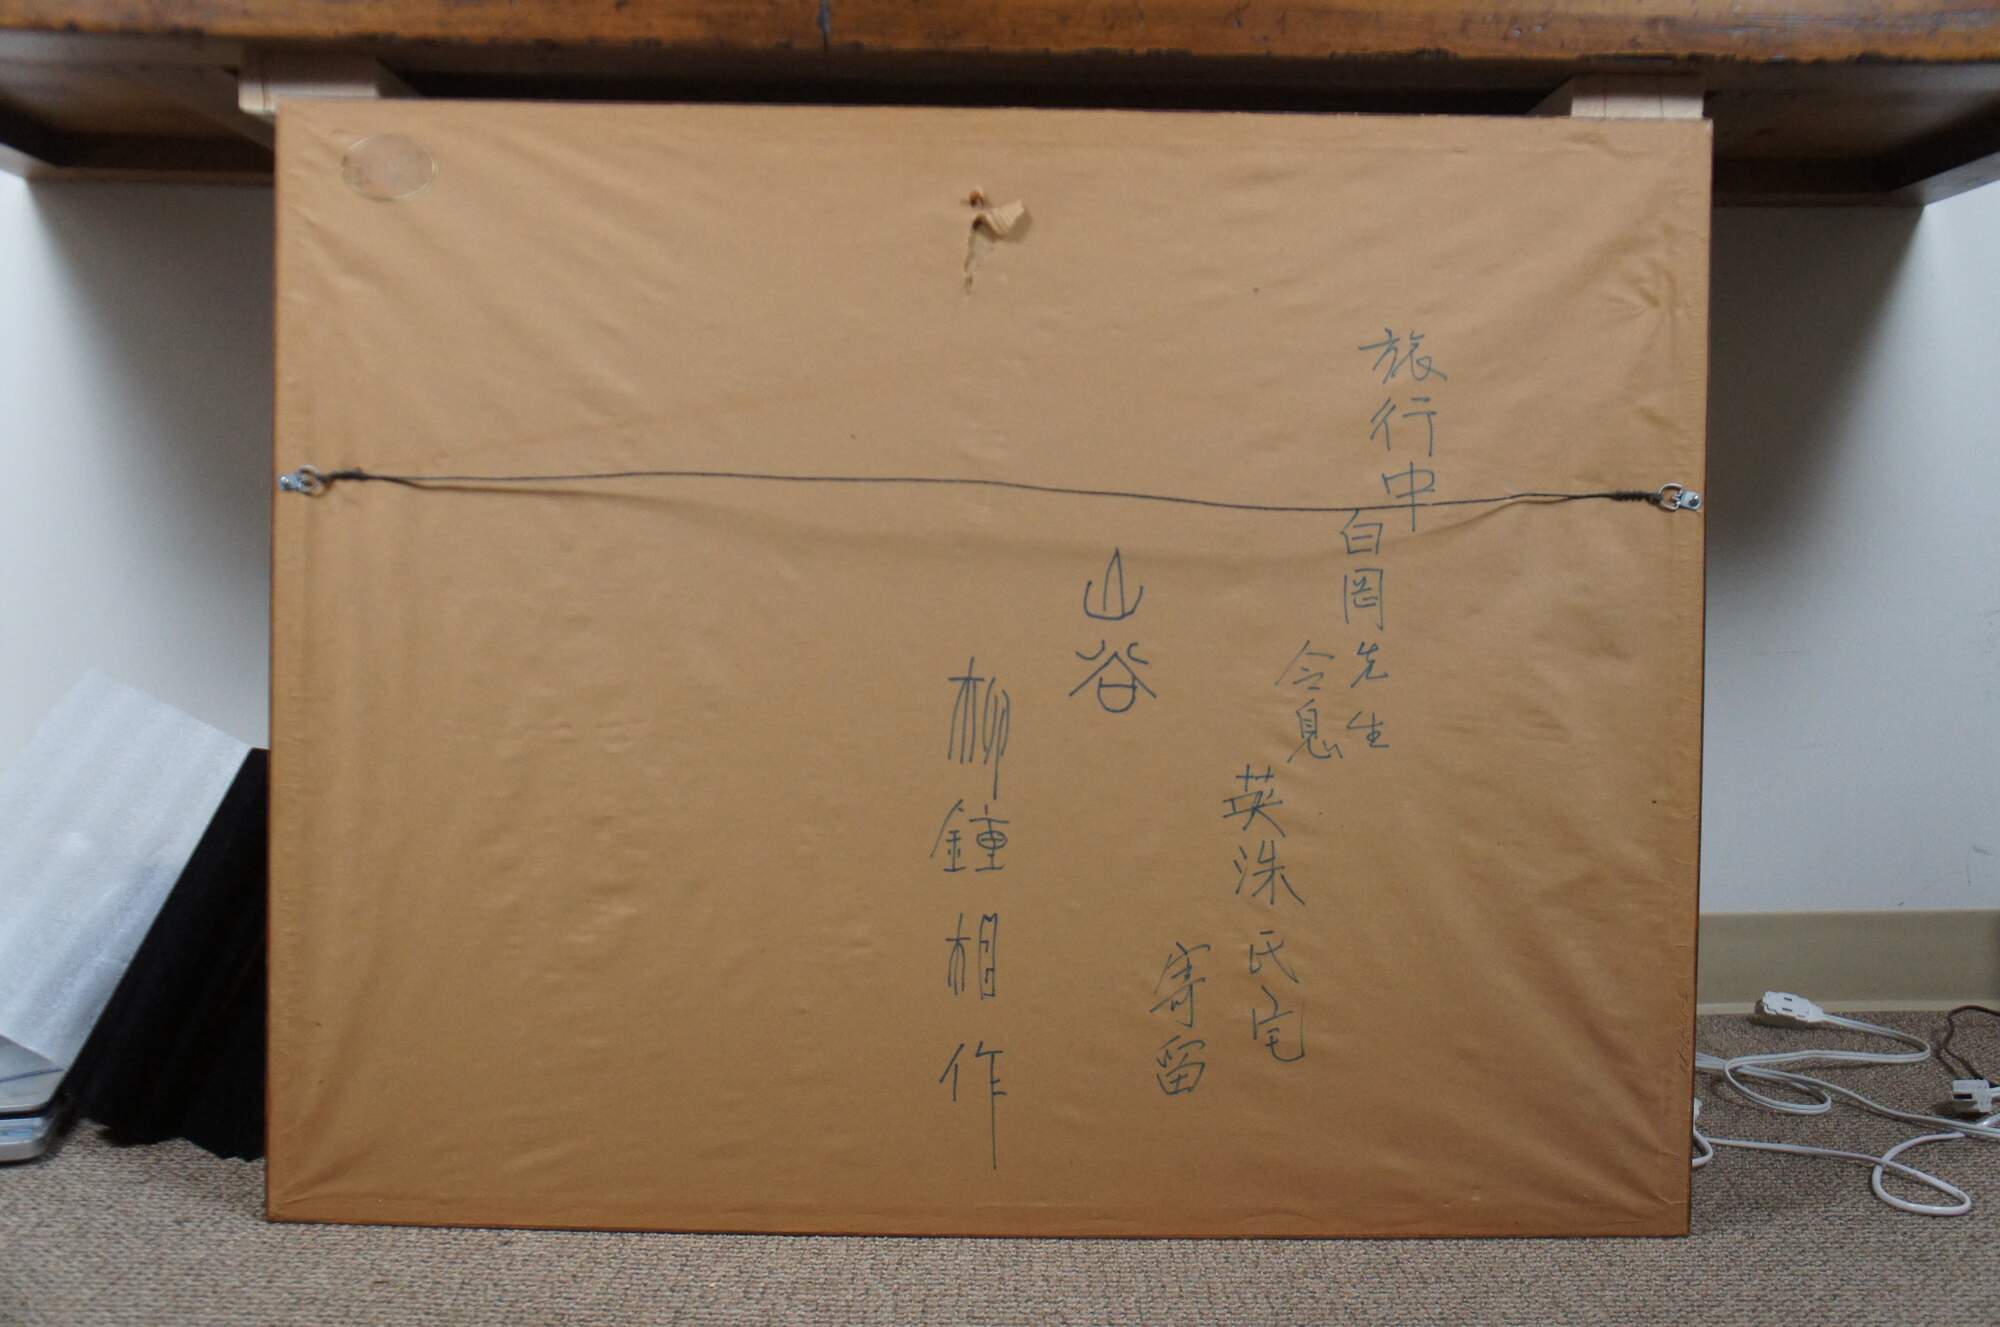 旅行中
白岡先生
令息
英洙氏宅
寄留
山谷
柳鍾相作